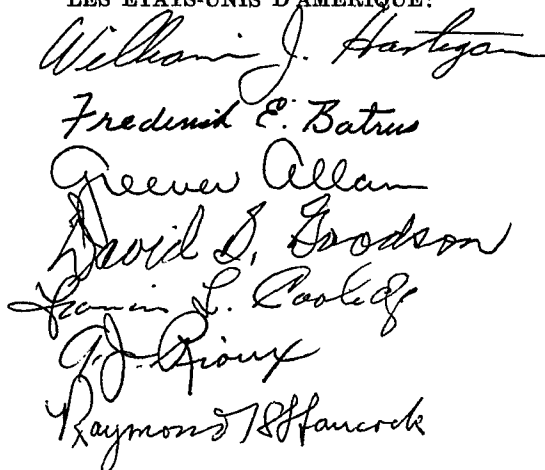 LES ÉTATS-UNIS D'AMÉRIQUE:
William J. Hartigan
Frederick E. Batrus
Greever Allan
David S. Goodson
Francis L. Coolidge
A. J. Rioux
Raymond B Hancock